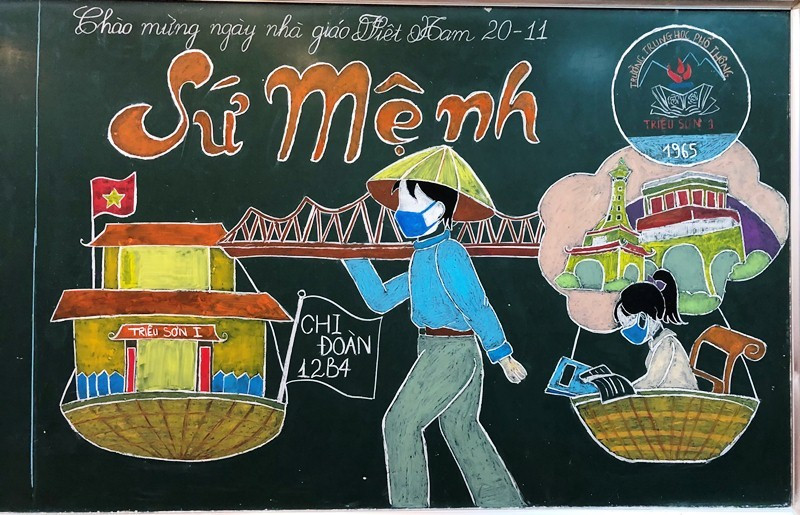 Chào mừng ngày nhà giáo Việt Nam 20-11
Sứ Mệnh
TRƯỜNG TRUNG HỌC PHỔ THÔNG
TRIỆU SƠN I
1965
TRIỆU SƠN I
CHI
ĐOÀN
12B4